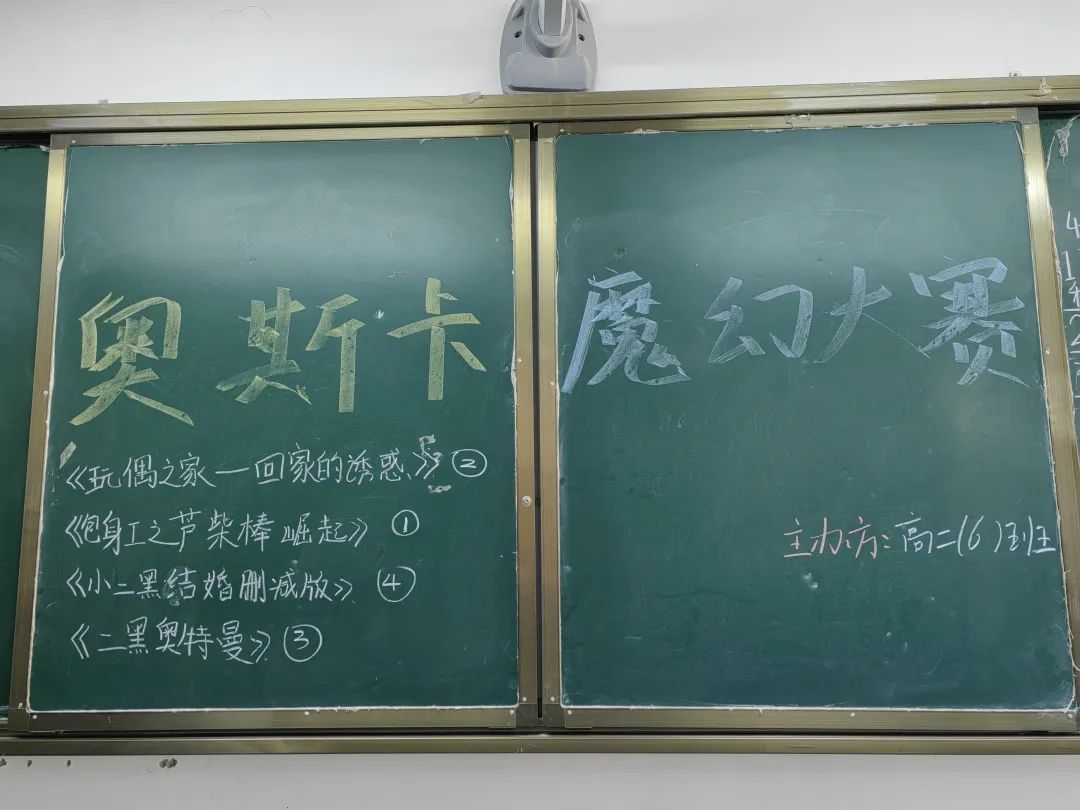 奥斯卡
《玩偶之家一回家的诱惑》②
《包身工之芦柴棒崛起》①
《小二黑结婚删减版》④
《二黑奥特曼》③
魔幻大赛
主办方:高二(6)班